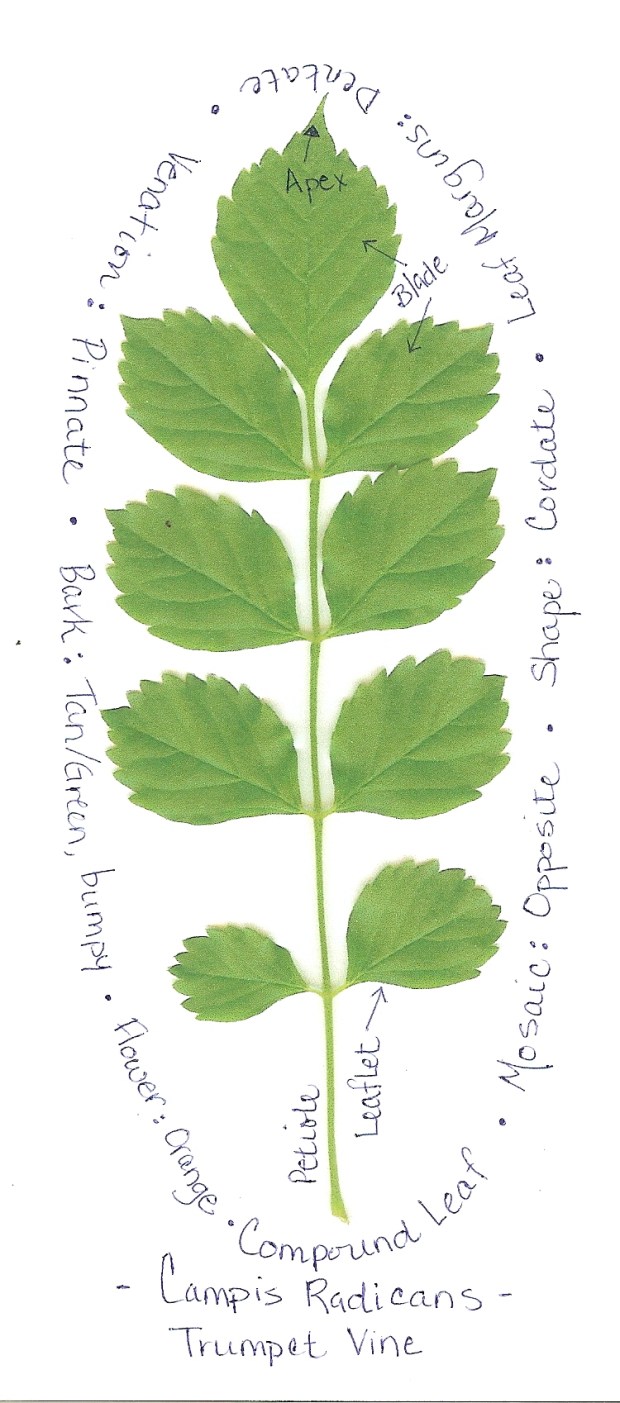 Apex
Blade
Leaflet
Petiole
Compound Leaf • Mosaic: Opposite • Shape: Cordate • Leaf Margins: Dentate • Venation: Pinnate • Bark: Tan/Green, bumpy • Flower: Orange •
- Campis Radicans -
Trumpet Vine